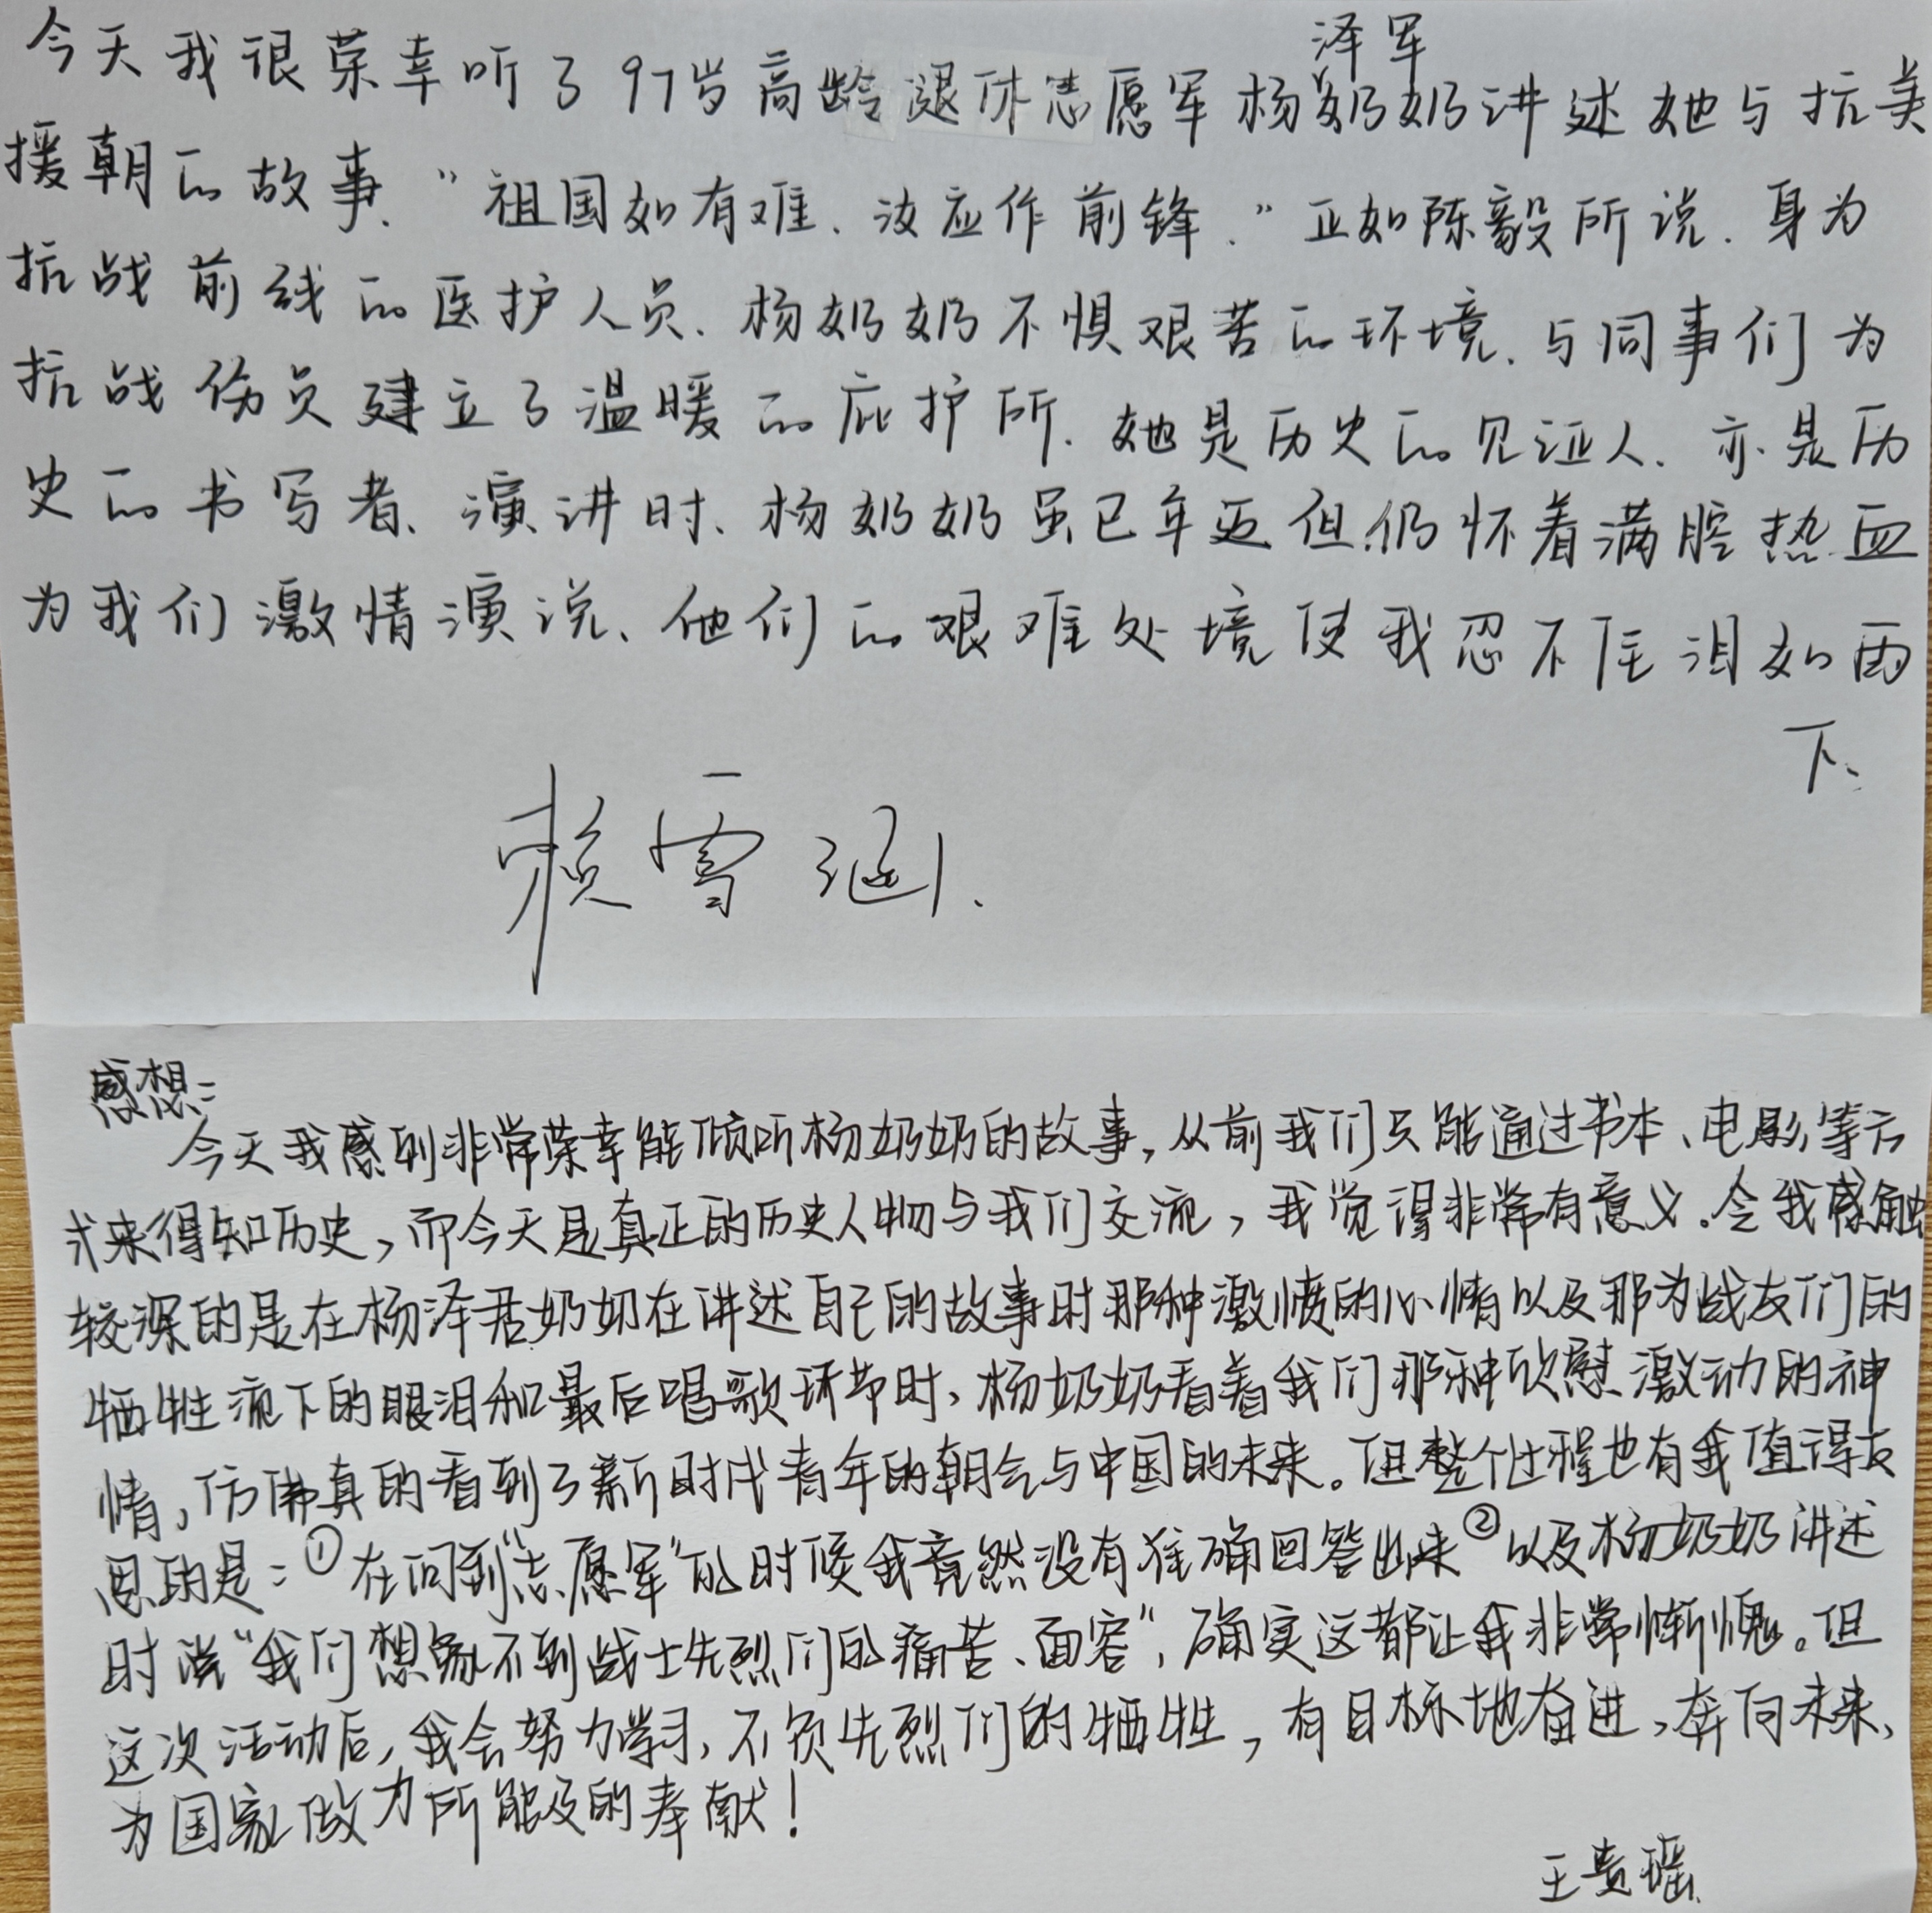 泽军
今天我很荣幸听了97岁高龄退休志愿军杨奶奶讲述她与抗美
援朝的故事."祖国如有难.汝应作前锋."正如陈毅所说.身为
抗战前线的医护人员.杨奶奶不惧艰苦的环境.与同事们为
抗战伤员建立了温暖的庇护所.她是历史的见证人.亦是历
史的书写者、演讲时、杨奶奶虽已年迈但仍怀着满腔热血
为我们激情演说、他们的艰难处境使我忍不住泪如雨
下、
赖雪涵.
感想:
今天我感到非常荣幸能倾听杨奶奶的故事,从前我们只能通过书本、电影等方
式来得知历史,而今天是真正的历史人物与我们交流,我觉得非常有意义。令我感触
较深的是在杨泽君奶奶在讲述自己的故事时那种激愤的心情以及那为战友们的
牺牲流下的眼泪和最后唱歌环节时,杨奶奶看着我们那种欣慰激动的神
情,仿佛真的看到了新时代青年的朝气与中国的未来。但整个过程也有我值得反
思的是:①在问到"志愿军"的时候我竟然没有准确回答出来②以及杨奶奶讲述
时说"我们想象不到战士先烈们的痛苦、面容",确实这都让我非常惭愧。但
这次活动后,我会努力学习,不负先烈们的牺牲,有目标地奋进,奔向未来,
为国家做力所能及的奉献!
王贵瑶